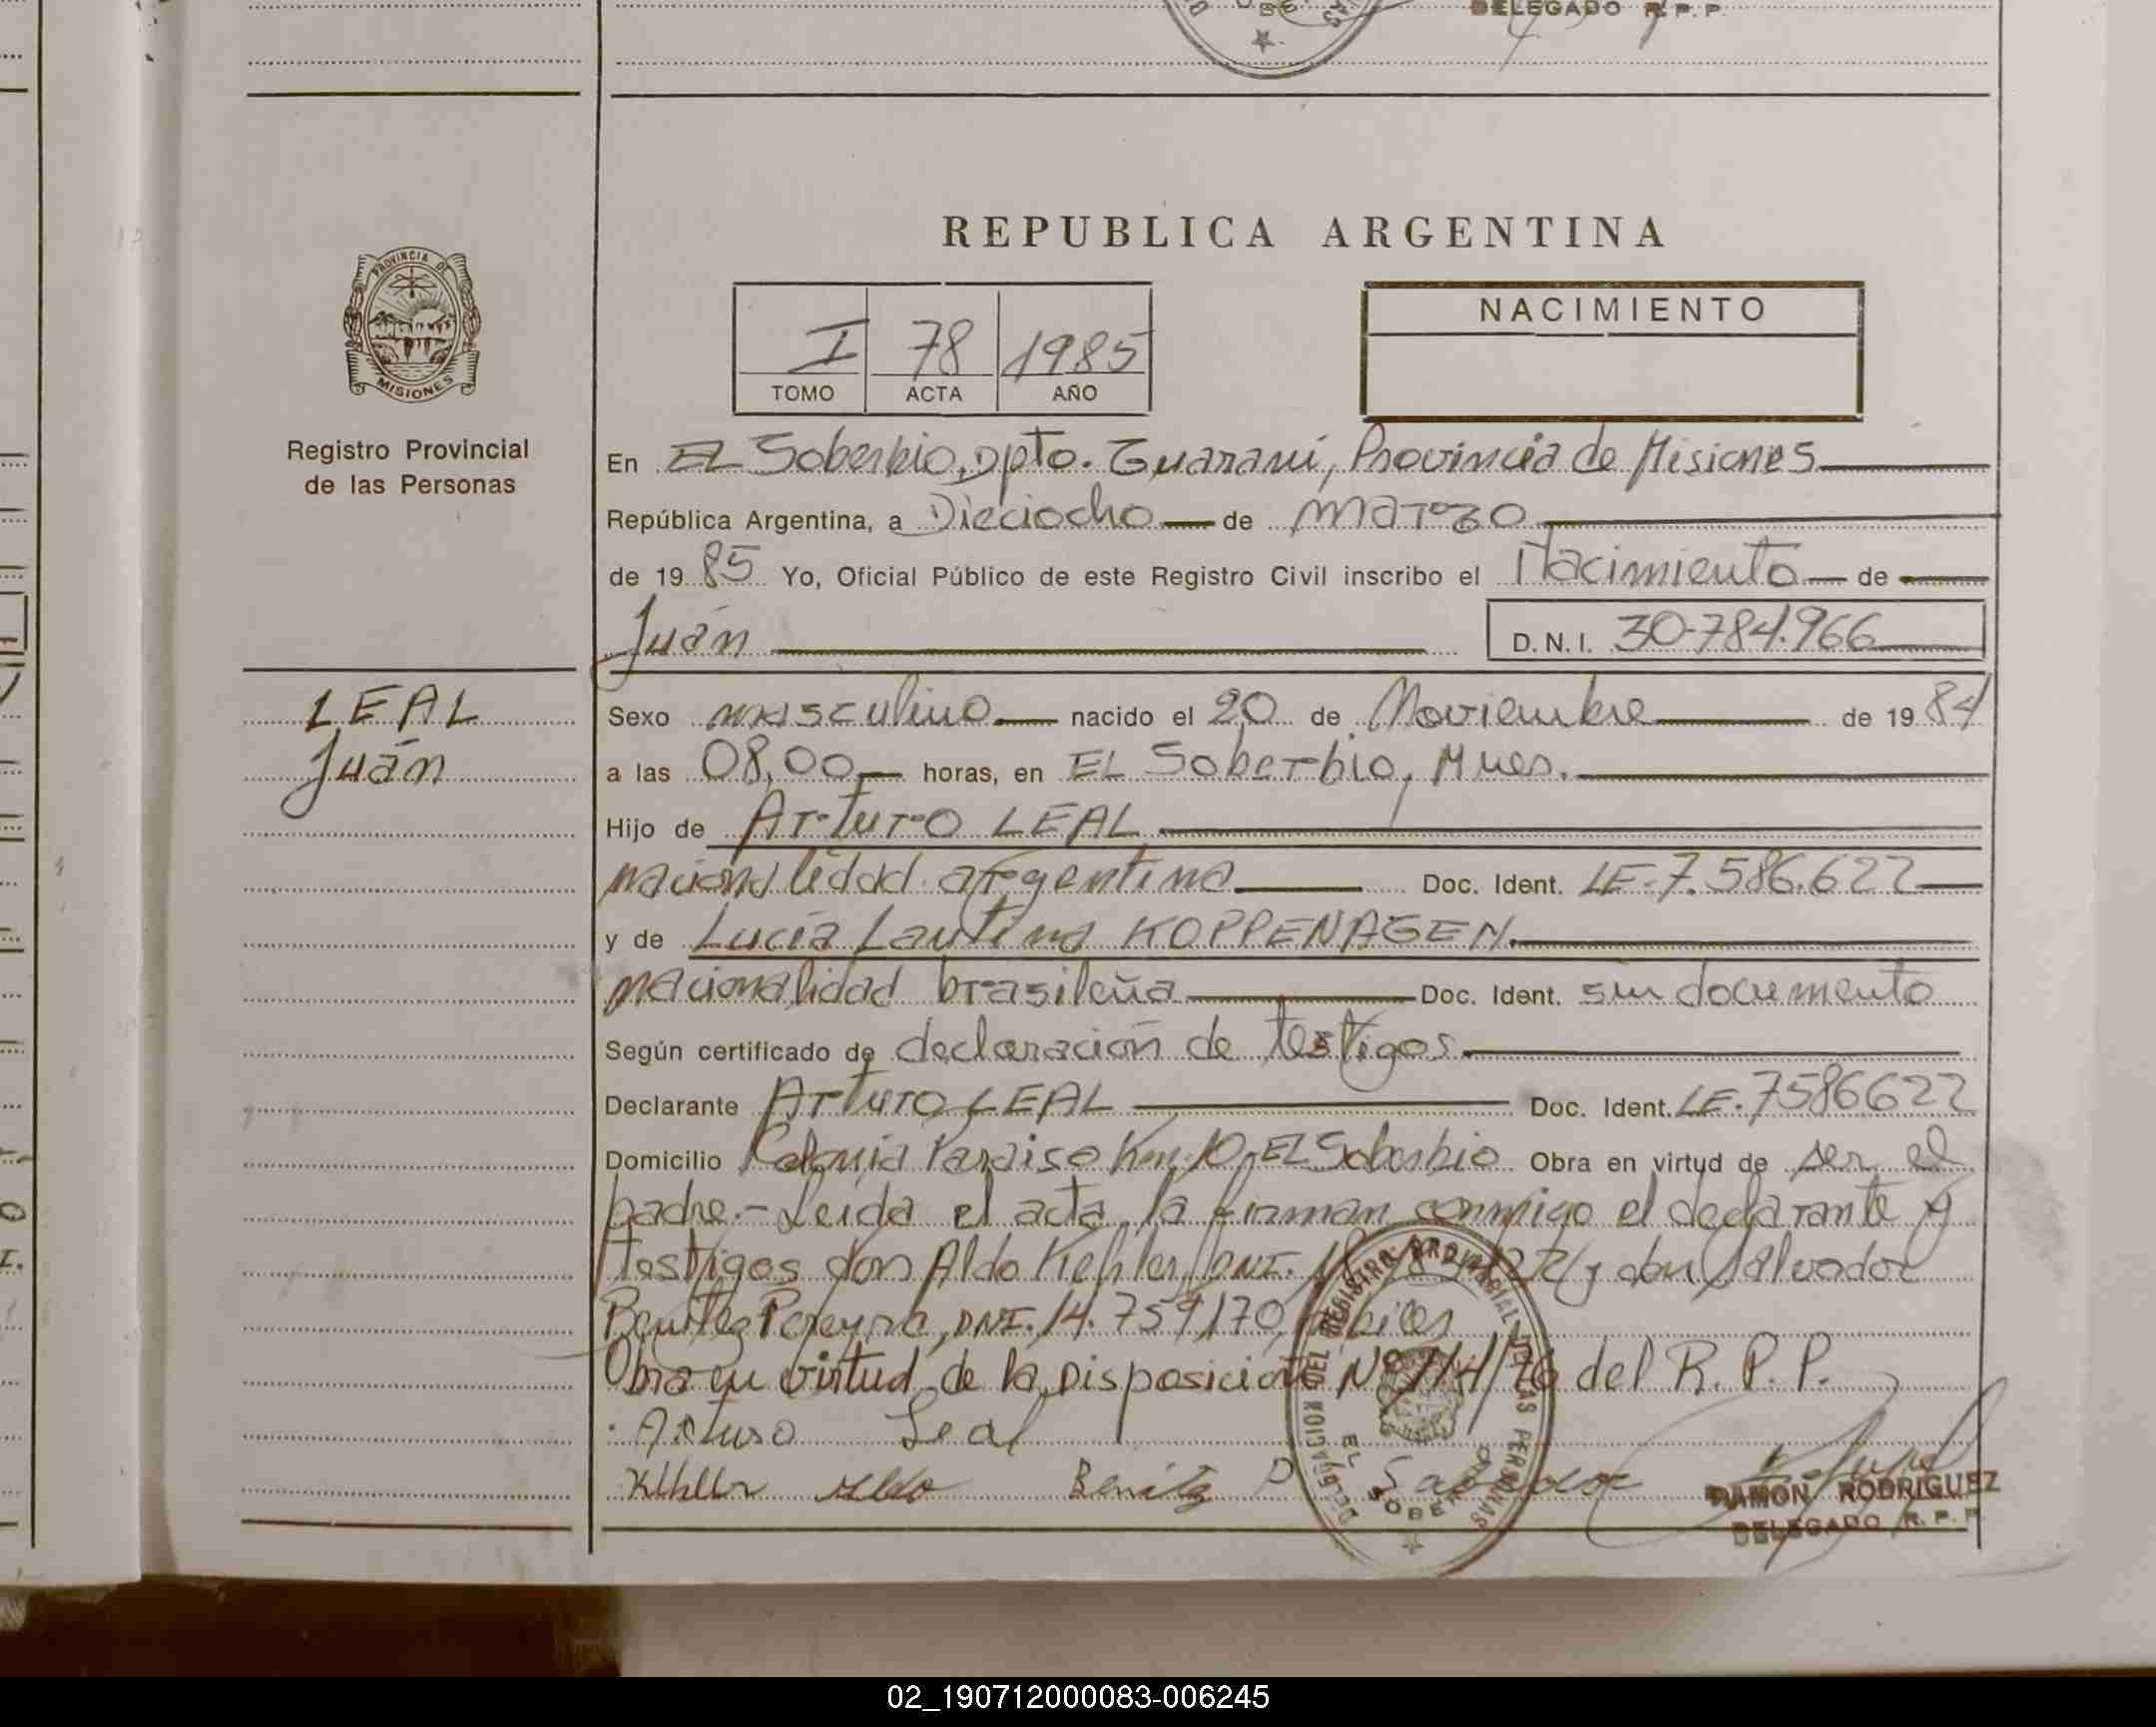 DELEGADO R. P. P.
REPUBLICA ARGENTINA
PROVINCIA DE
MISIONES
Registro Provincial
de las Personas
I 78 1985
TOMO ACTA AÑO
NACIMIENTO
En EL Soberbio, Dpto. Guaraní, Provincia de Misiones
República Argentina, a Dieciocho de marzo
de 1985 Yo, Oficial Público de este Registro Civil inscribo el Nacimiento de
Juán D. N. I. 30.784.966
LEAL
Juán
Sexo masculino nacido el 20 de Noviembre de 1984
a las 08,00 horas, en EL Soberbio, Mnes.
Hijo de Arturo LEAL
nacionalidad argentina Doc. Ident. LE. 7.586.622
y de Lucía Lautina KOPPENAGEN
nacionalidad brasileña Doc. Ident. sin documento
Según certificado de declaración de testigos
Declarante Arturo LEAL Doc. Ident. LE. 7586622
Domicilio Colonia Paraiso Km. 10, EL Soberbio Obra en virtud de ser el
padre.- Leída el acta, la firman conmigo el declarante y
testigos don Aldo Kehler, DNI. y don Salvador
Benitez Pereyra, DNI. 14.759.170,
Obra en virtud de la Disposición Nº 114/76 del R. P. P.
Arturo Leal
Benitez P Salvador
DELEGACION DEL REGISTRO PROVINCIAL DE LAS PERSONAS
EL SOBERBIO
RAMON RODRIGUEZ
DELEGADO R. P. P.
02_190712000083-006245